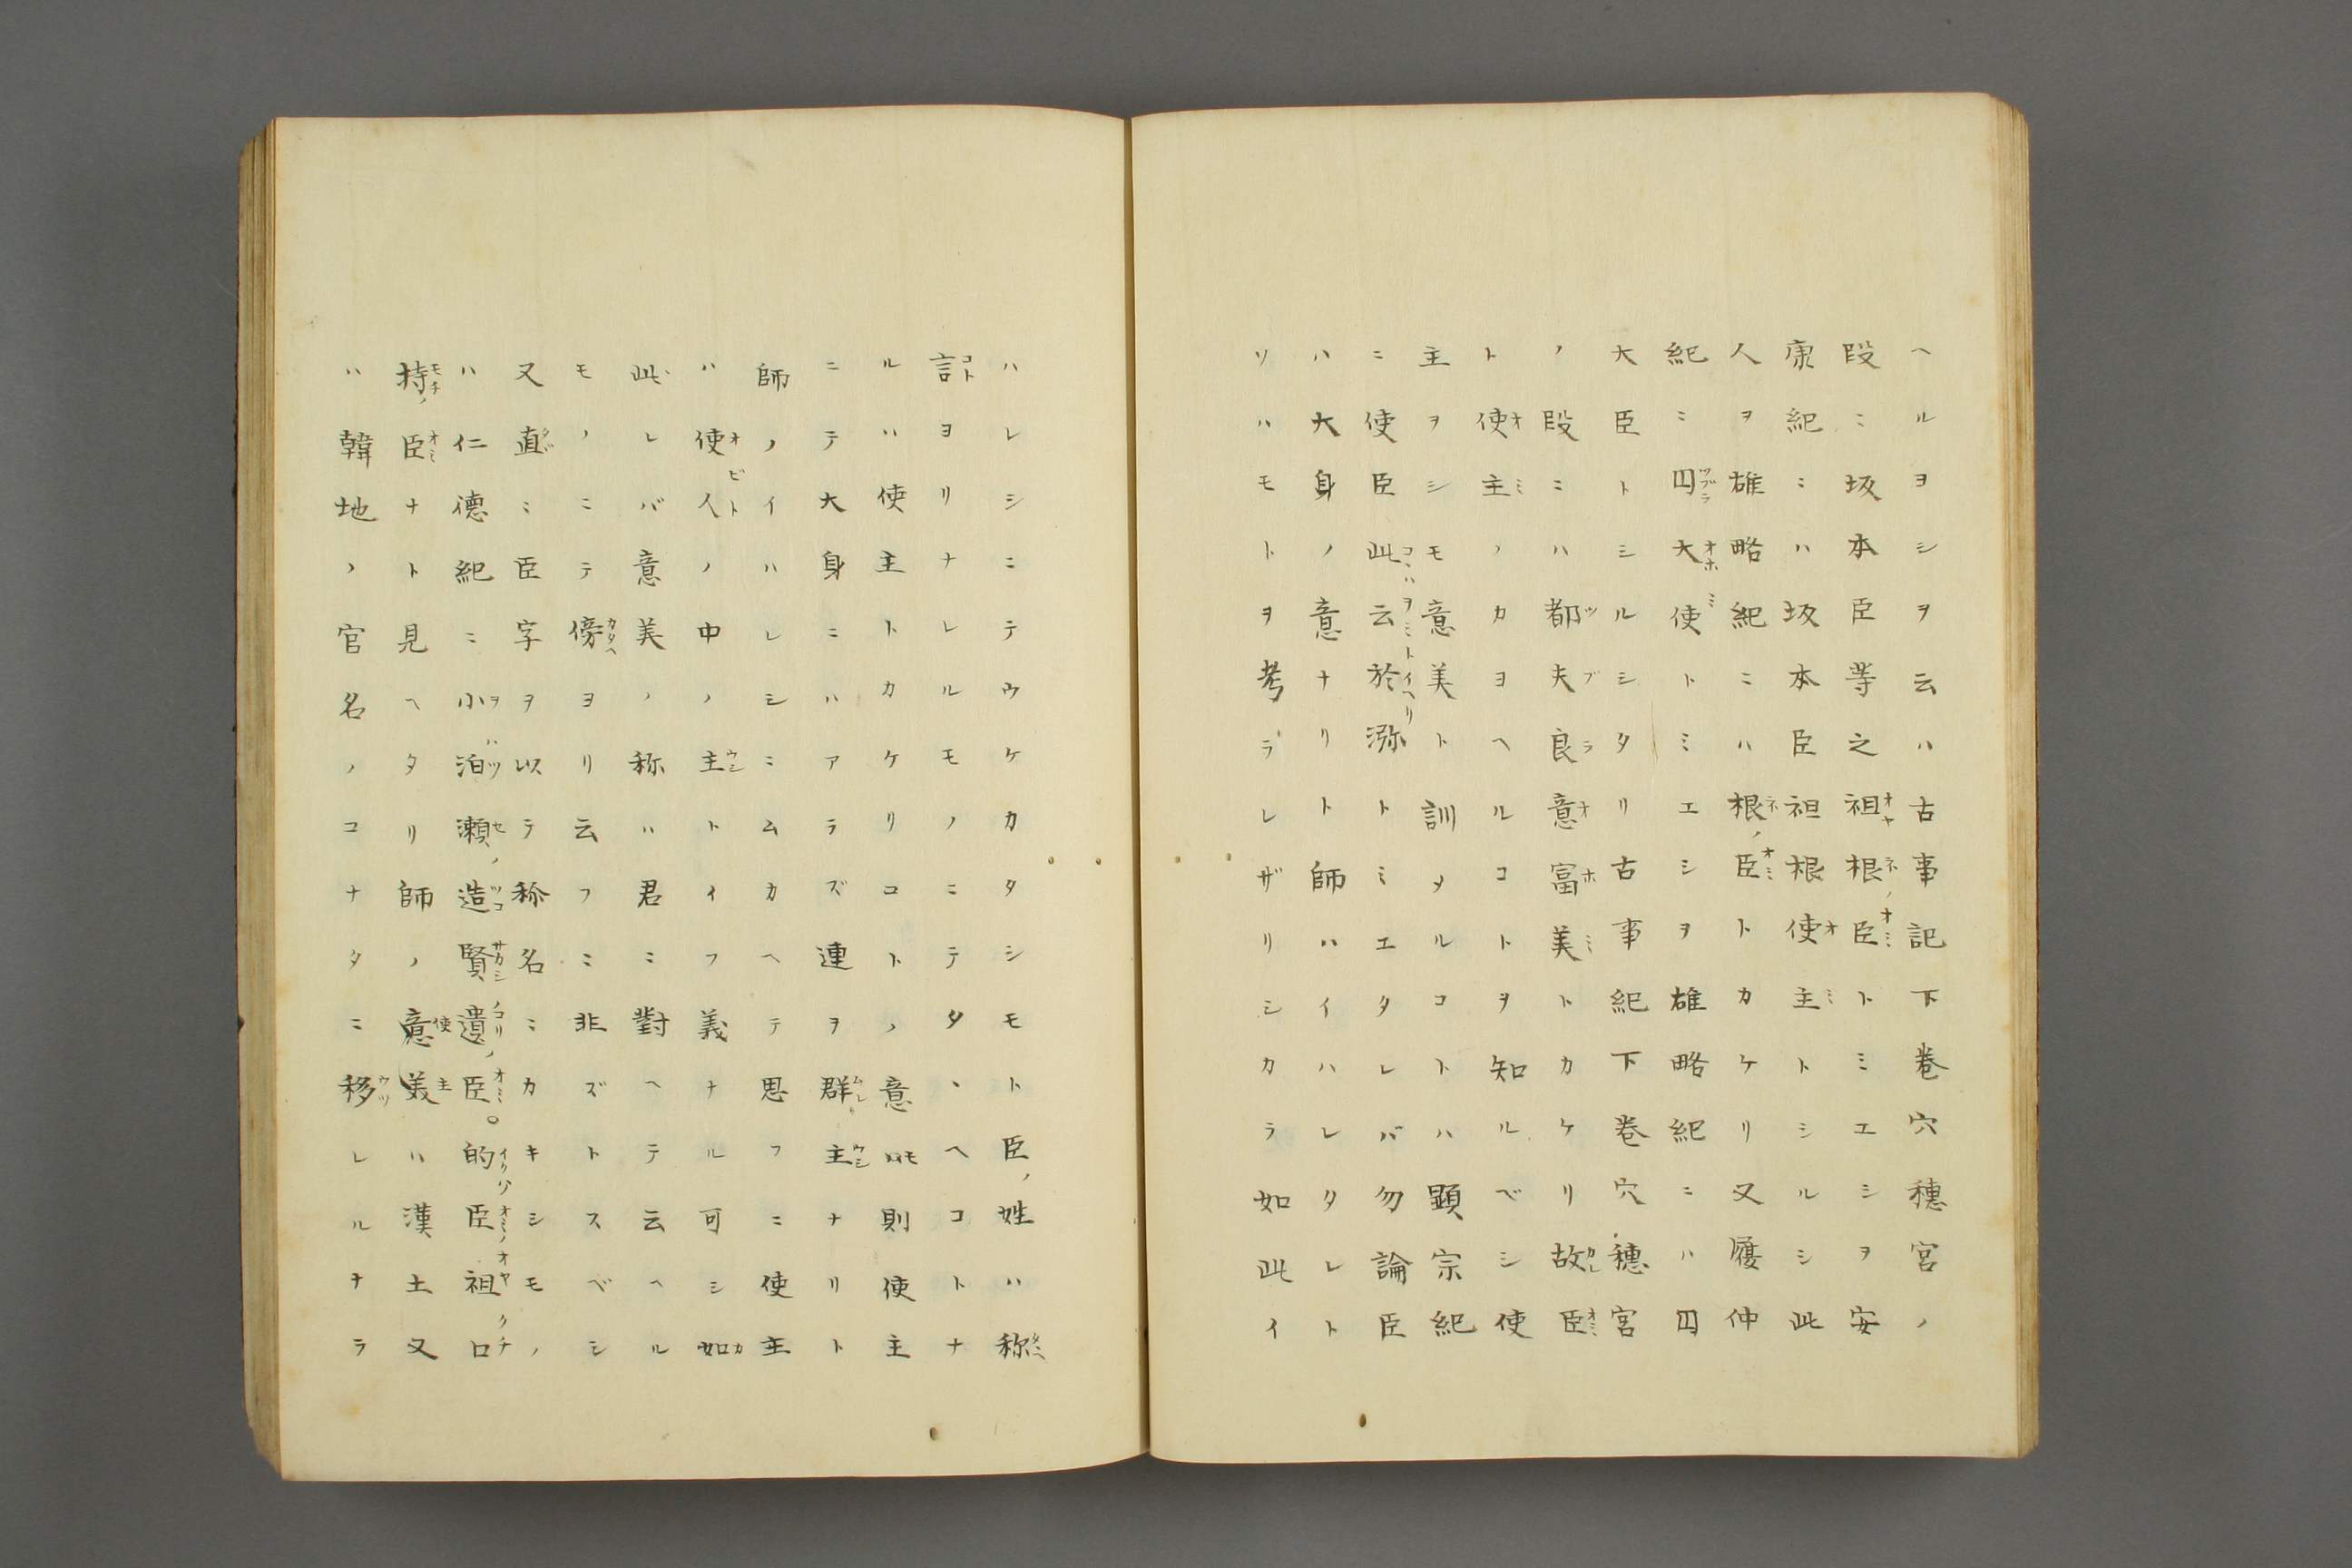 ヘルヲシヲ云ハ古事記下巻穴穗宮ノ
段ニ坂本臣等之祖根臣トミエシヲ安
康紀ニハ坂本臣祖根使主トシルシ此
人ヲ雄略紀ニハ根ノ臣トカケリ又履仲
紀ニ円大使トミエシヲ雄略紀ニハ円
大臣トシルシタリ古事紀下巻穴穗宮
ノ段ニハ都夫良意富美トカケリ故臣
ト使主ノカヨヘルコトヲ知ルベシ使
主ヲシモ意美ト訓メルコトハ顕宗紀
ニ使臣此云於瀰トミエタレバ勿論臣
ハ大身ノ意ナリト師ハイハレタレト
ソハモトヲ考ラレザリシカラ如此イ
ハレシニテウケカタシモト臣ノ姓ハ称
言ヨリナレルモノニテタヽヘコトナ
ルハ使主トカケリコトノ意以テ則使主
ニテ大身ニハアラズ連ヲ群主ナリト
師ノイハレシニムカヘテ思フニ使主
ハ使人ノ中ノ主トイフ義ナル可シ如
此レバ意美ノ称ハ君ニ對ヘテ云ヘル
モノニテ傍ヨリ云フニ非ズトスベシ
又直ニ臣字ヲ以テ称名ニカキシモノ
ハ仁徳紀ニ小泊瀬ノ造賢遺ノ臣。的臣祖口
持ノ臣ナト見ヘタリ師ノ意美ハ漢土又
ハ韓地ノ官名ノコナタニ移レルナラ